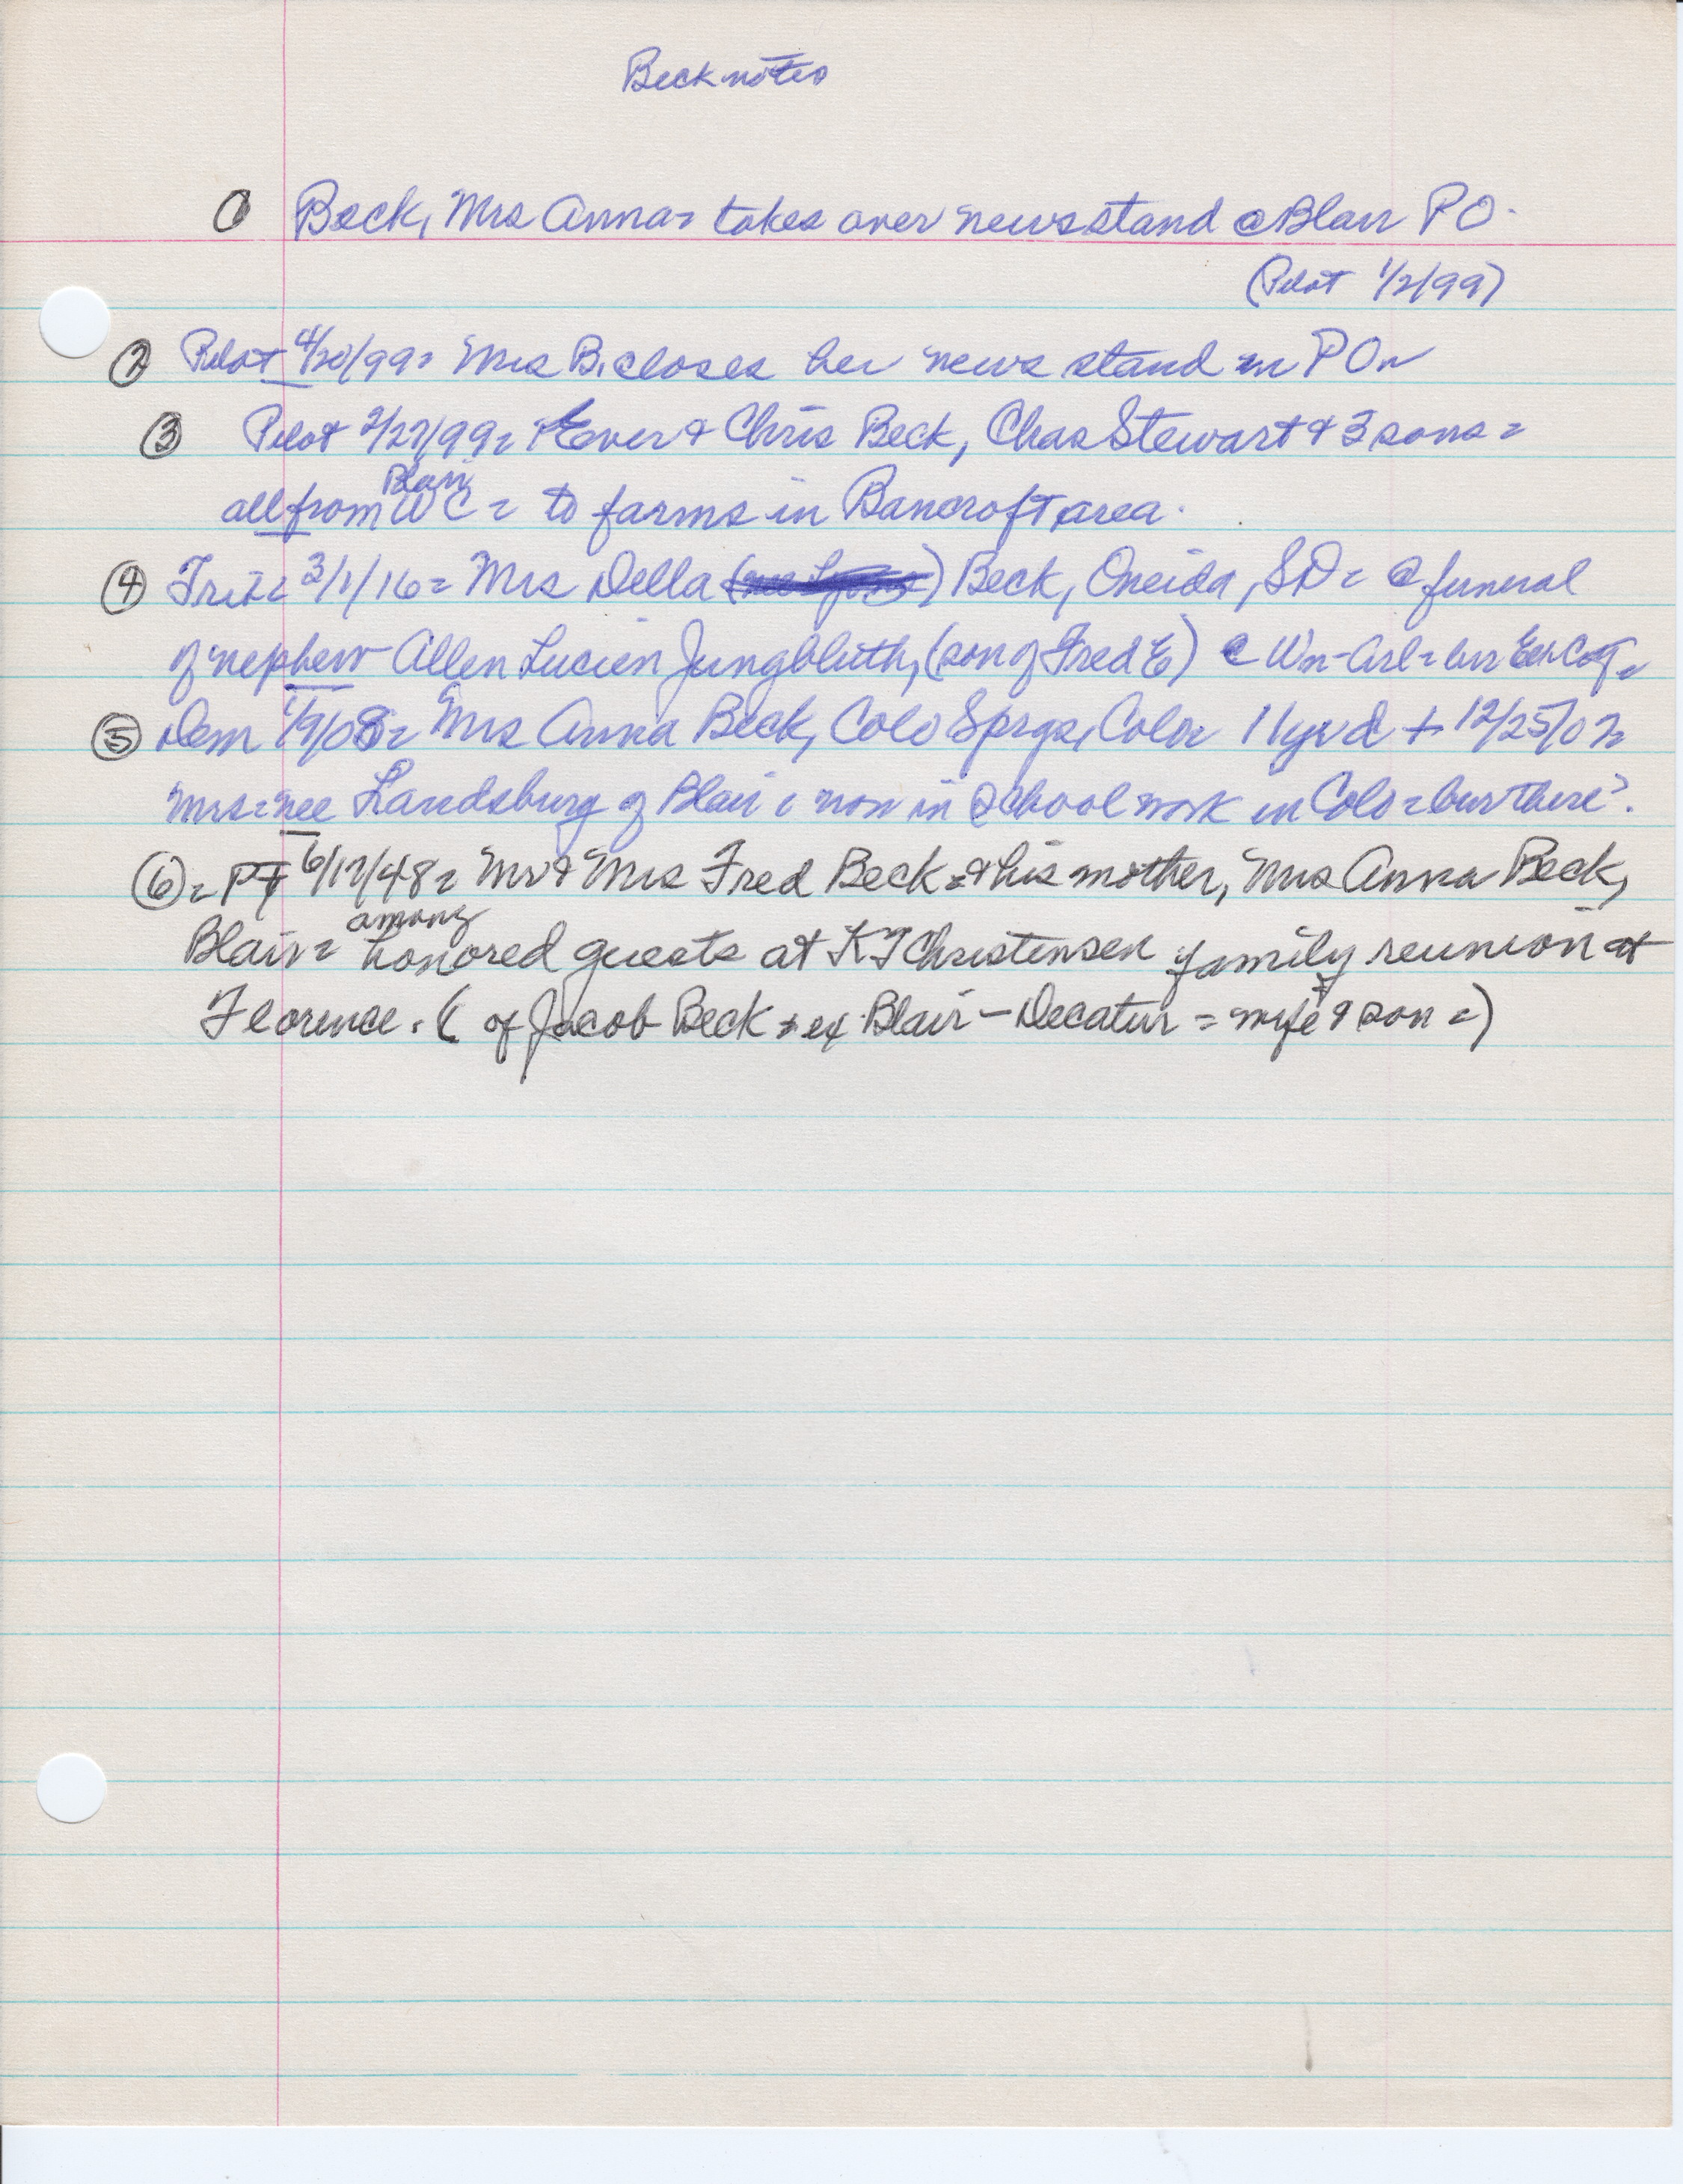 Beck notes
① Beck, Mrs Anna = takes over newsstand @ Blair PO.
(Pilot 1/2/99)
② Pilot 4/20/99 = Mrs B. closes her news stand in PO =
③ Pilot 2/27/99 = & Chris Beck, Chas Stewart & 3 sons =
all from Blair WC = to farms in Bancroft area.
④ Trib = 3/1/16 = Mrs Della Beck, Oneida, SD = @ funeral
of nephew Allen Lucien Jungbluth, (son of Fred E) @ Wn-Arl = bur
⑤ Dem 1/9/08 = Mrs Anna Beck, Colo Sprgs, Colo = + 12/25/07
Mrs = nee Landsburg of Blair = now in school work in Colo = bur there?
⑥ = PT 6/17/48 = Mr & Mrs Fred Beck = & his mother, Mrs Anna Beck,
Blair = among honored guests at KJ Christensen family reunion at
Florence. ( of Jacob Beck = ex Blair – Decatur = wife & son = )